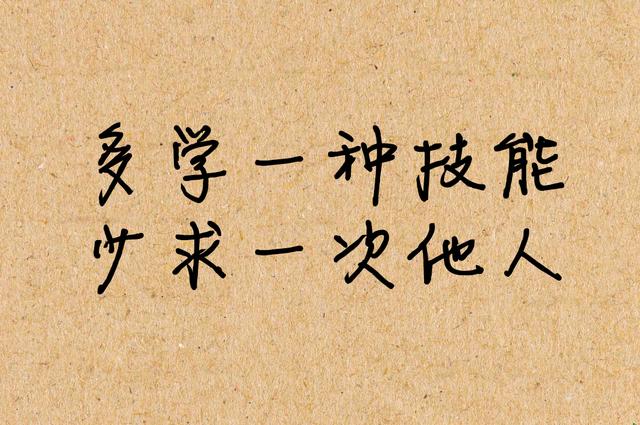 多学一种技能
少求一次他人